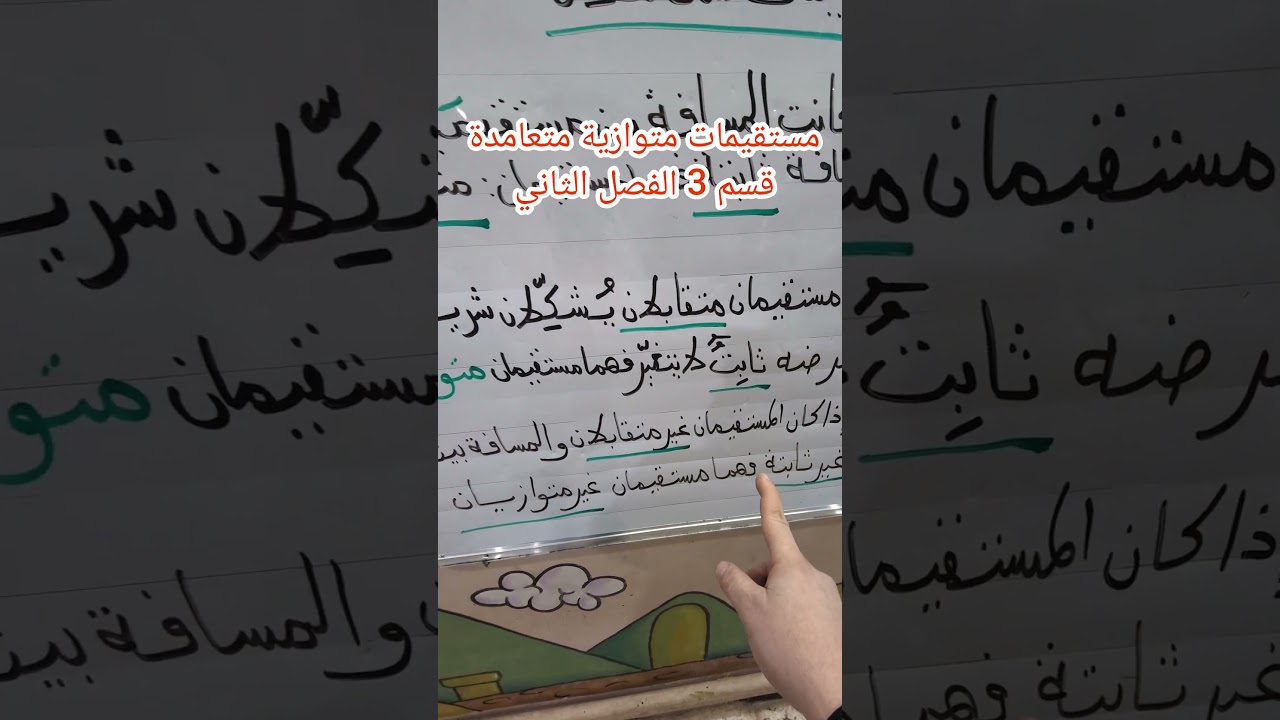 مستقيمات متوازية متعامدة
قسم 3 الفصل الثاني
انت المسافة بين مستقيمين
افة ثابتة
مستقيمان متقابلان يُشكِّلان شريـ
عرضه ثابِتٌ لا يتغيّر فهما مستقيمان متو
إذا كان المستقيمان غير متقابلان والمسافة بينـ
غير ثابتة فهما مستقيمان غير متوازيـــان